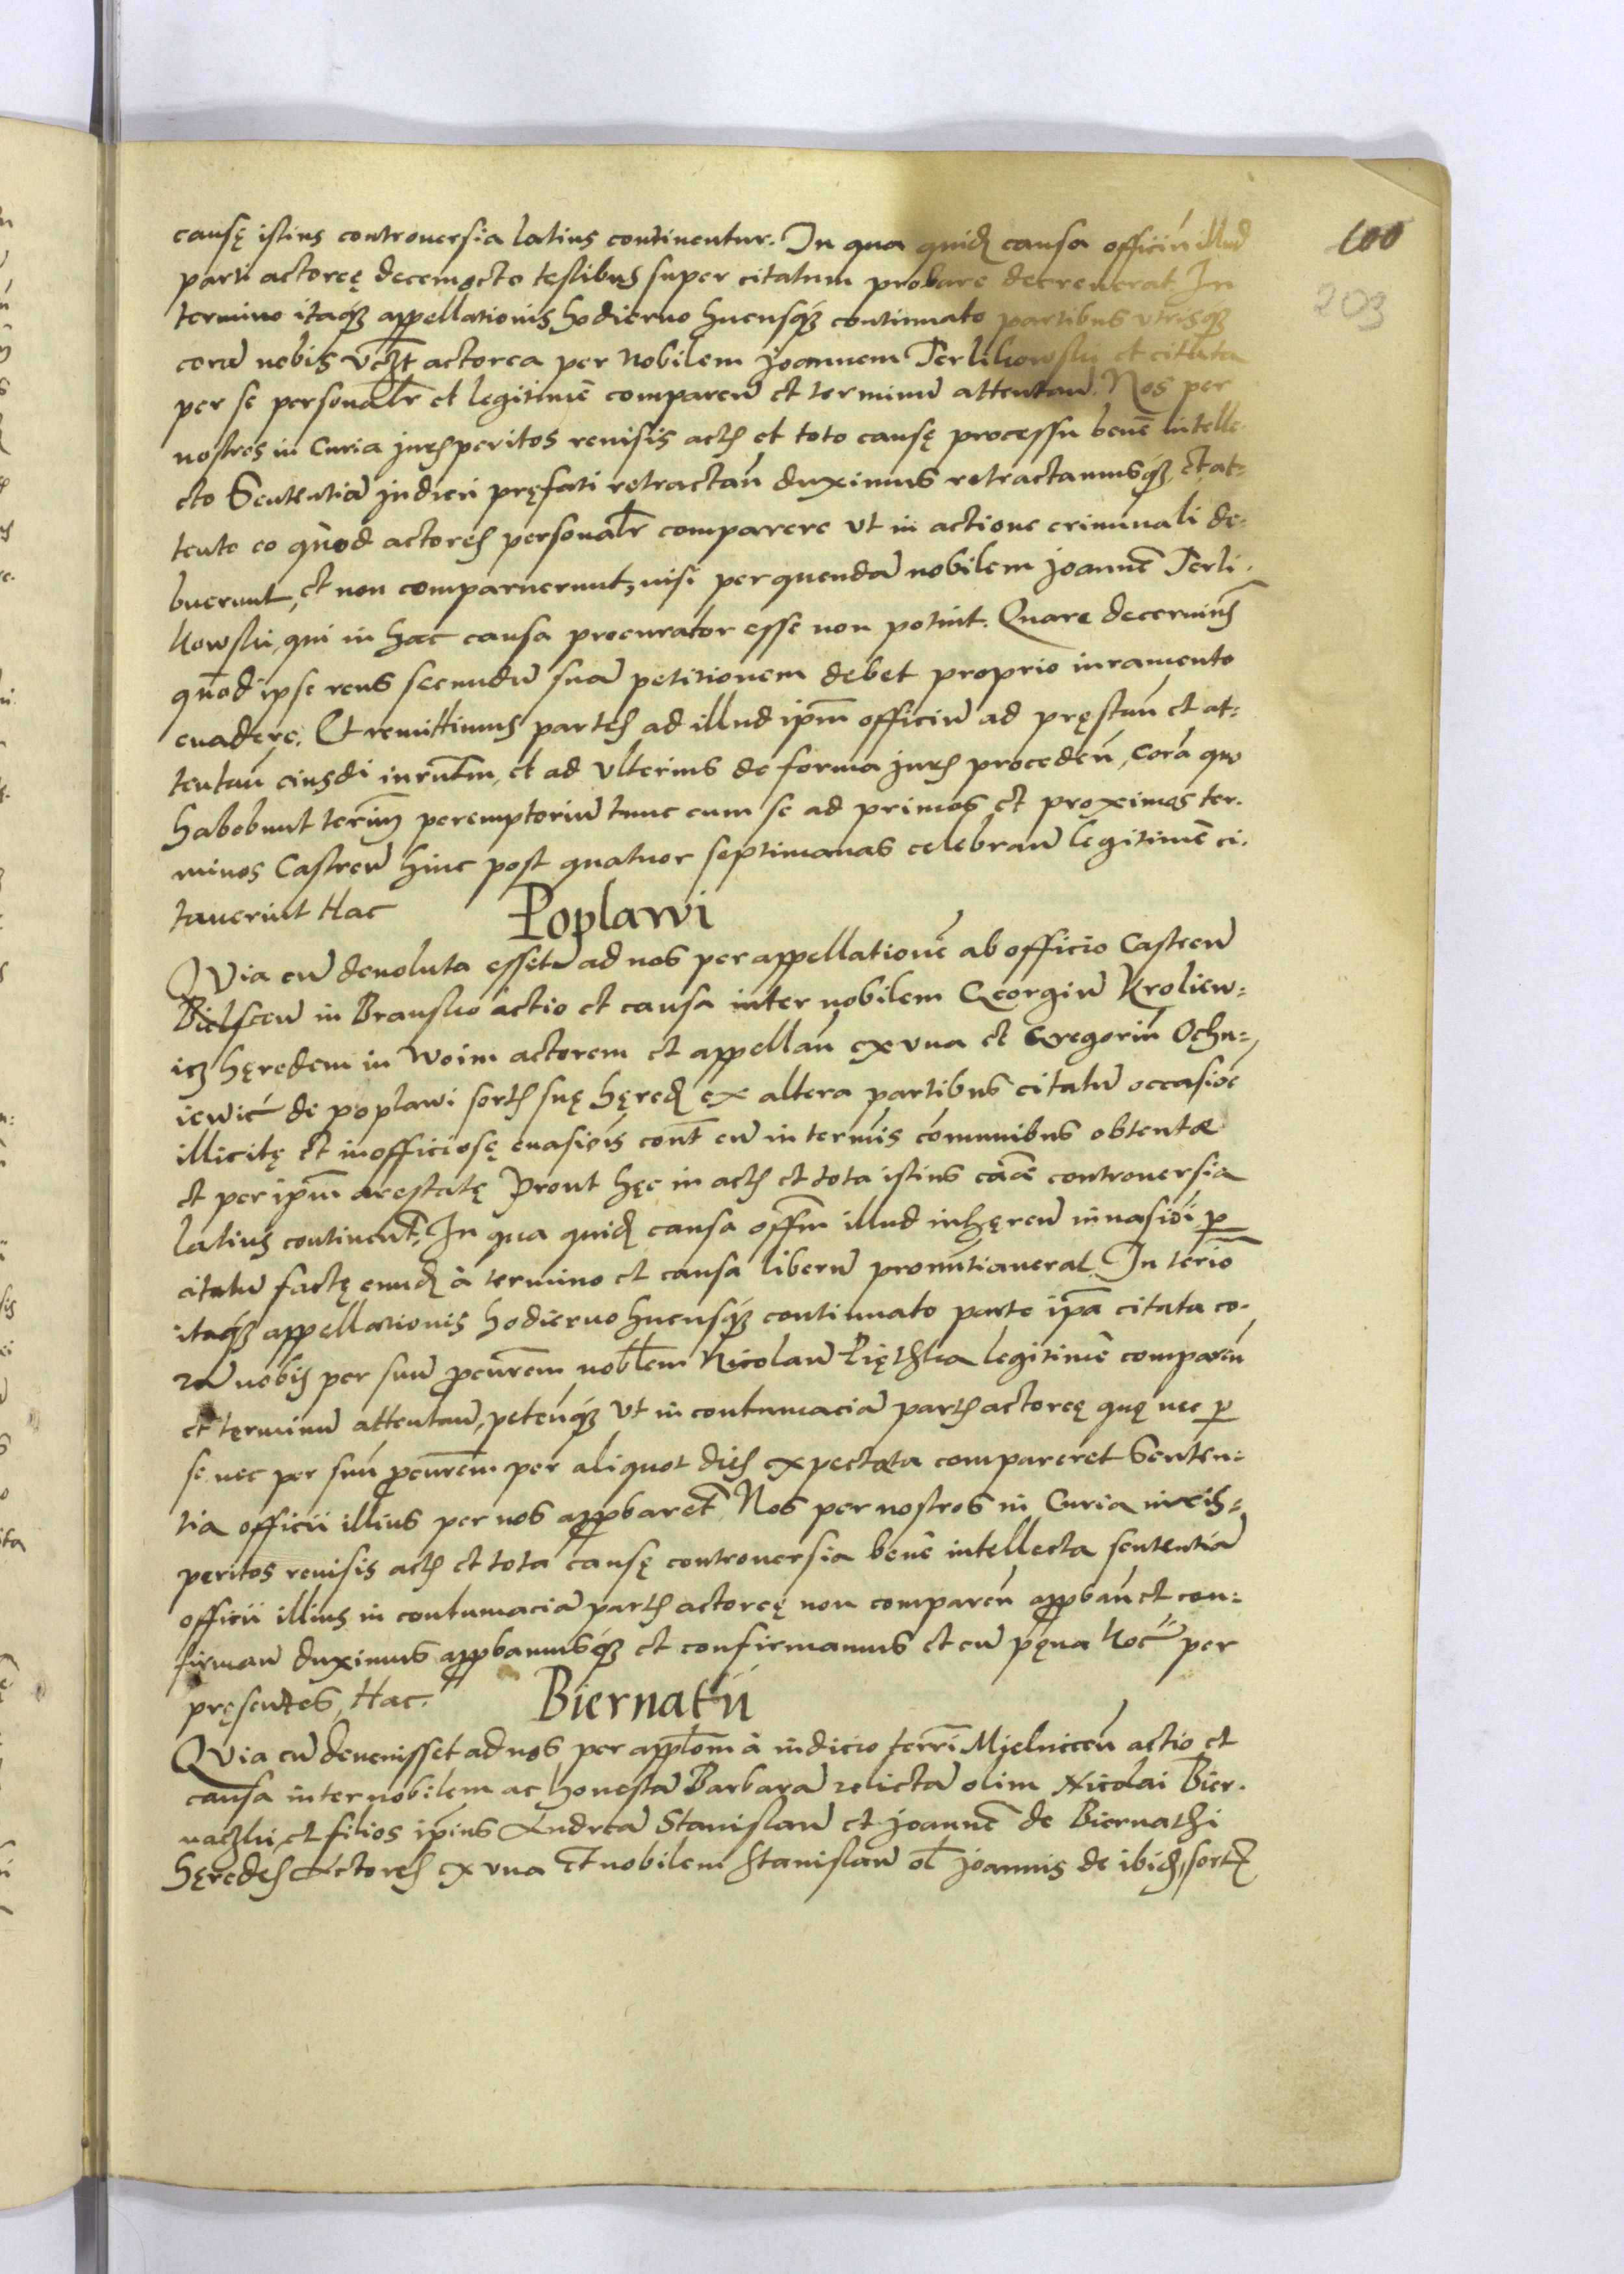 causę istius controuersia latius continentur. In qua quidꝫ causa officiū illud
parti actoreę decemocto testibus super citatum probare decreuerat. In
termino itaqꝫ appellationis hodierno hucusqꝫ continuato partibus vtrisqꝫ
corā nobis vꝫt actorea per Nobilem Joannem Terlikowski et citata
per se personalr̃ et legitimè comparen̄ et terminū attentan̄. Nos per
nostros in Curia jurisperitos reuisis actis et toto causę processu benè intelle-
cto Sententiā judicij pręfati retractan̄ duximus retractamusqꝫ, et at=
tento eo quòd actores personalr̃ comparere vt in actione criminali de=
buerunt, et non comparuerunt, nisi per quendā nobilem Joannē Terli-
kowski, qui in hac causa procurator esse non potuit. Quare decernimus
quod ipse reus secundū suā petitionem debet proprio iuramento
euadere. Et remittimus partes ad illud ipm̄ officiū ad pręstan̄ et at=
tentan̄ eiusdi iurnt̄m, et ad vlterius de forma juris proceden̄, Corā quo
habebunt termī peremptoriū tunc cum se ad primos et proximos ter-
minos Castren̄ hinc post quatuor septimanas celebran̄ legitimè ci-
tauerint Hac
Poplawi
QVia cū deuoluta essetꝰ ad nos per appellationē ab officio Castren̄
Bielscen̄ in Bransko actio et causa inter nobilem Georgiū Kroliew=
icz hęredem in Woim actorem et appellan̄ ex vna et Gregoriū Ochn=
iewic̄ de poplawi sortis suę hęredꝫ ex altera partibus citatū occasiōe
illicitę et inofficiosę euasiōis cont̄ eū in termīs cōmunibus obtentæ
et per ipm̄ arestatę Prout hęc in actis et tota istius cāæ controuersia
latius continent̄r, In qua quidꝫ causa offm̄ illud inhęren̄ inuasiōi p
citatū factę eundꝫ à termino et causa liberū pronuntiauerat. In teriō
itaqꝫ appellationis hodierno hucusqꝫ continuato parte ipā citata co-
rā nobis per suū pcurem̄ nobl̄em Nicolaū Pięthka legitimè comparen̄
et terminū attentan̄, petenqꝫ vt in contumaciā partis actoreę quę nec p
se nec per suū pcurem̄ per aliquot dies expectata compareret Senten=
tia officii illius per nos appbaret̄. Nos per nostros in Curia iuris=
peritos reuisis actis et tota causę controuersia benè intellecta sententiā
officii illius in contumaciā partis actoreę non comparen̄ appban̄ et con=
firman̄ duximus appbamusqꝫ et confirmamus et cū pęna Koc̄ per
pręsentes, Hac.
Biernatii
QVia cū deuenisset ad nos per applōm à iudicio terr̄i Mielnicen̄ actio et
causa inter nobilem ac honestā Barbarā relictā olim Nicolai Bier-
naczki, et filios ipīus Andreā Stanislaū et Joannē de Biernathi
hęredes Actores ex vna et nobilem Stanislaū ol̄ Joannis de ibidꝫ, sortꝫ
100
203